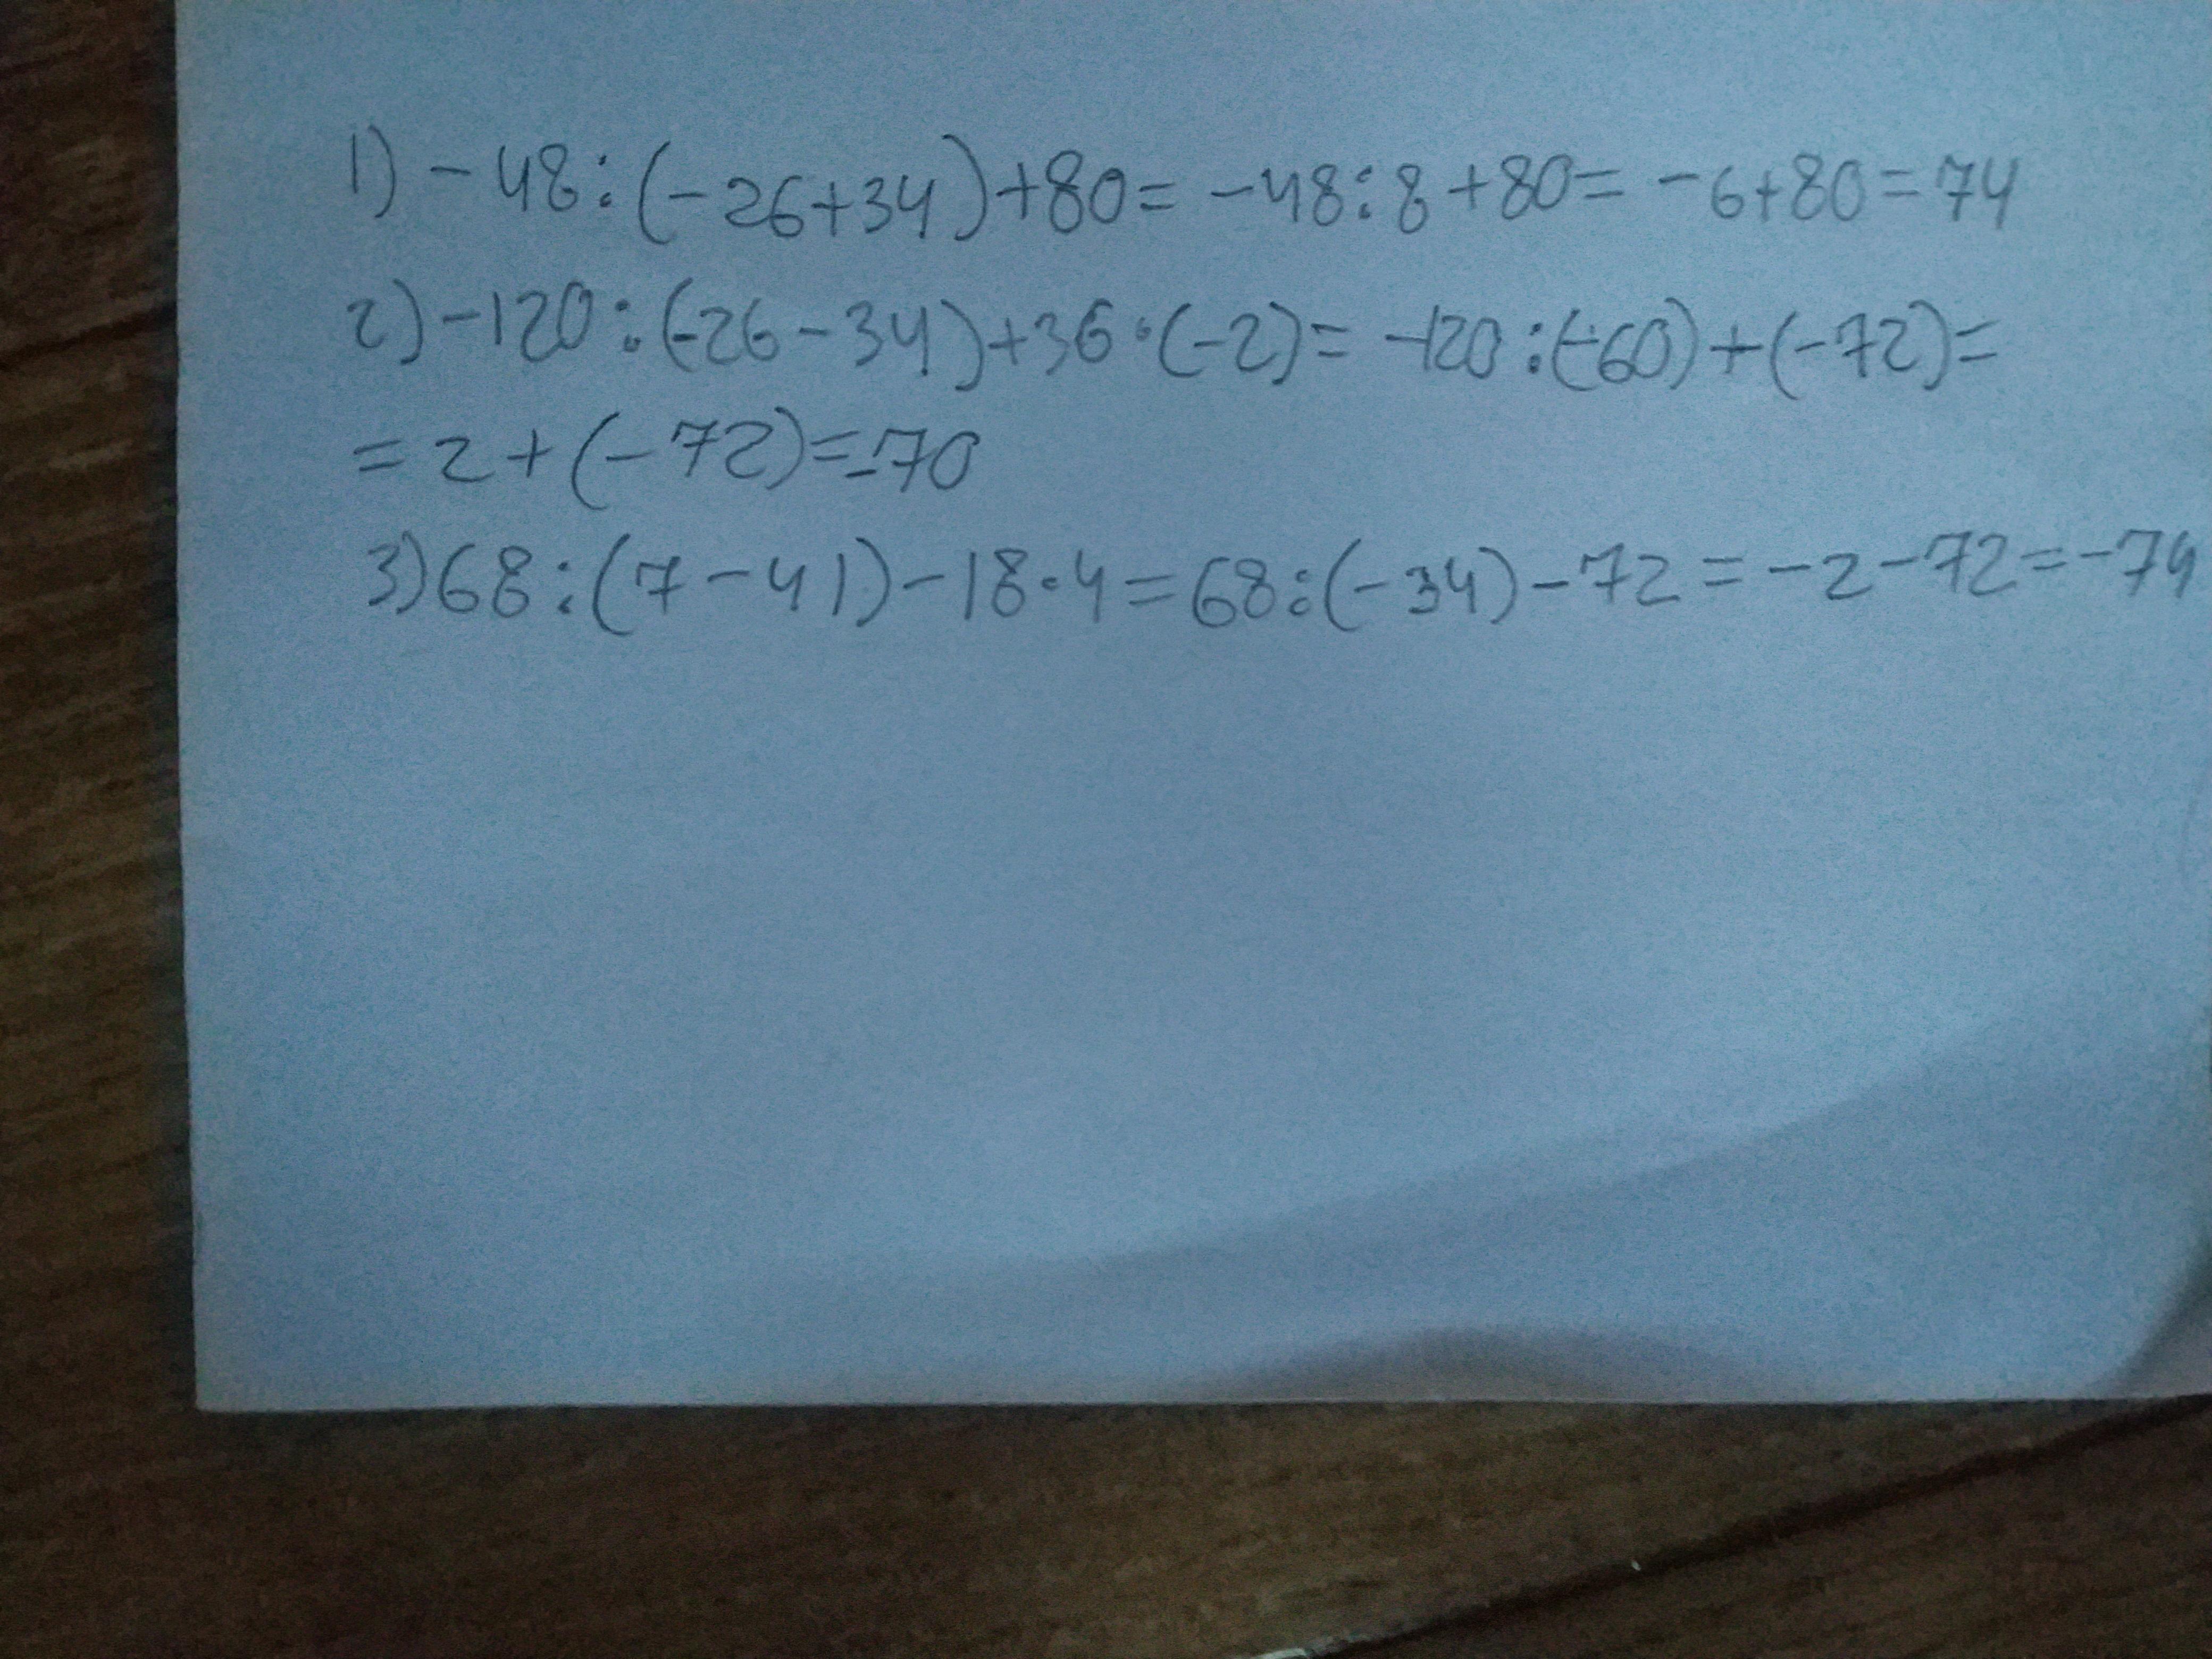 1) -48:(-26+34)+80= -48:8+80= -6+80=74
2) -120:(-26-34)+36·(-2)= -120:(-60)+(-72)=
=2+(-72)=-70
3) 68:(7-41)-18·4=68:(-34)-72=-2-72=-74